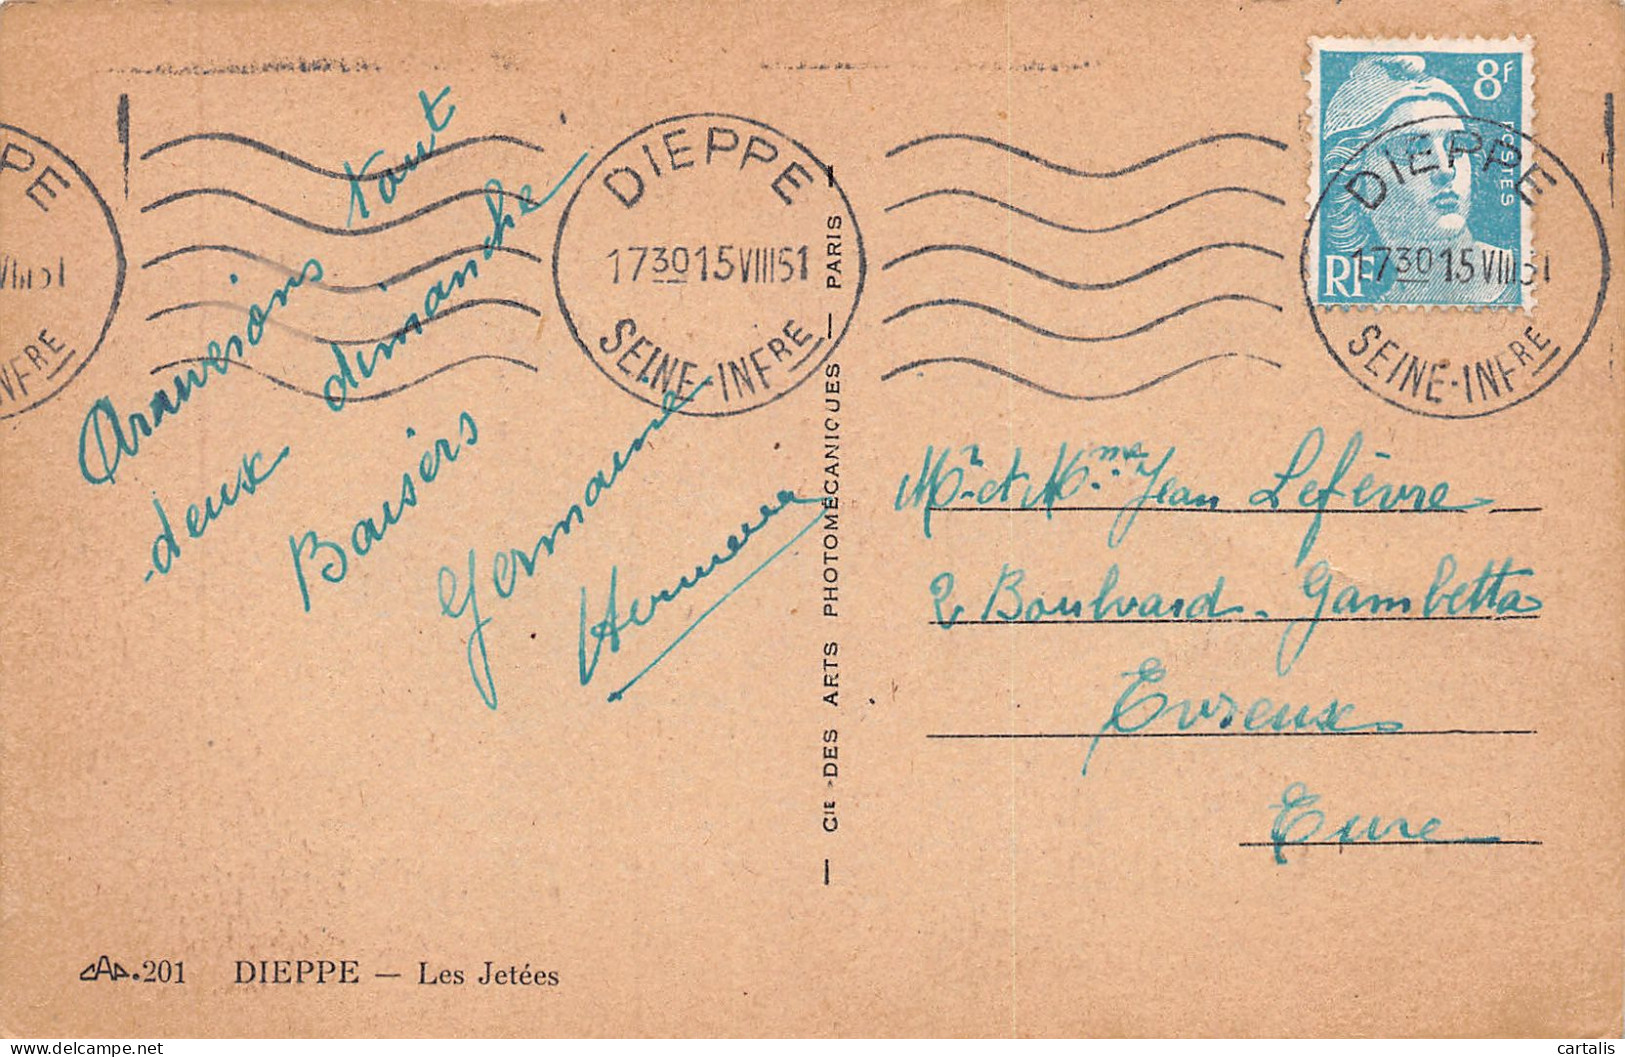 PE
VIII 51
NFRE
DIEPPE
17 30 15 VIII 51
SEINE-INFRE
8F
POSTES
RF
DIEPPE
17 30 15 VIII 51
SEINE-INFRE
tout
deux dimanche
Baisers
Germaine
Mr et Mme Jean Lefèvre
2 Boulvard Gambetta
Evreux
Eure
— CIE DES ARTS PHOTOMÉCANIQUES — PARIS —
CAP. 201 DIEPPE — Les Jetées
Delcampe.net
cartalis